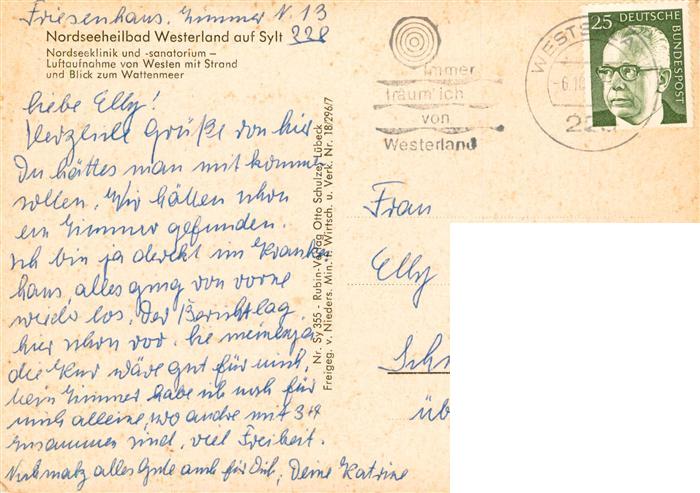 Friesenhaus. Zimmer N. 13
228
Nordseeheilbad Westerland auf Sylt
Nordseeklinik und -sanatorium –
Luftaufnahme von Westen mit Strand
und Blick zum Wattenmeer
liebe Elly!
Herzliche Grüße von hier
Du hättest man mit kommen
sollen. Wir hätten schon
ein Zimmer gefunden.
Ich bin ja direkt im Kranken
haus, alles ging von vorne
wieder los. Der Bericht lag
hier schon vor. Sie meinen ja
die Kur wäre gut für mich,
kein Zimmer habe ich noch für
mich alleine, wo andre mit 3+4
zusammen sind, viel Freiheit.
Nochmals alles Gute auch für Dich, Deine Katrine
Nr. Sy 355 - Rubin-Verlag Otto Schulze, Lübeck
Freigeg. v. Nieders. Min. f. Wirtsch. u. Verk. Nr. 18/296/7
immer
träum' ich
von
Westerland
25 DEUTSCHE
BUNDESPOST
Frau
Elly